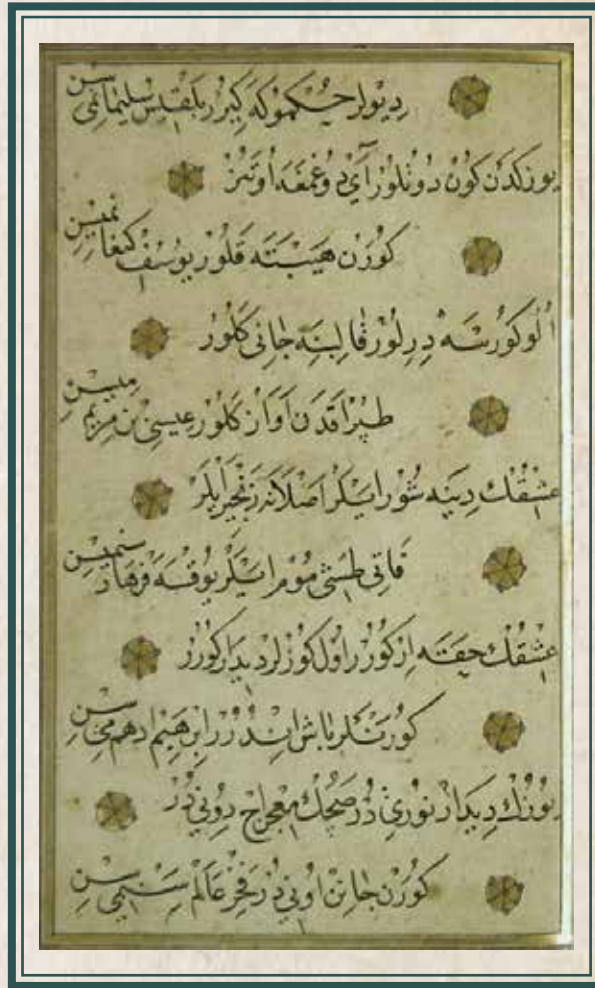 ديولر حكموكه كيرر بلقيس سليمانميسن
يوزكدن كون دوتلور آي دوغمغه اوتنر
كورن هيبته قلور يوسف كنعانميسن
الو كورسه دريلور قالبنه جاني كلور
طپراقدن آواز كلور عيسى بن مريمميسن
عشقك دينه شور ايلر اصلانه زنجير ايلر
قاتي طشي موم ايلر يوقسه فرهاد سنميسن
عشقك حقته ار كورر اول كوزلر ديدار كورر
كورنلر باش اندرر ابرهيم ادهمميسن
يوزك ديدار نوري در صچك معراج دوني در
كورن جانن اوني در فخر عالم سنميسن